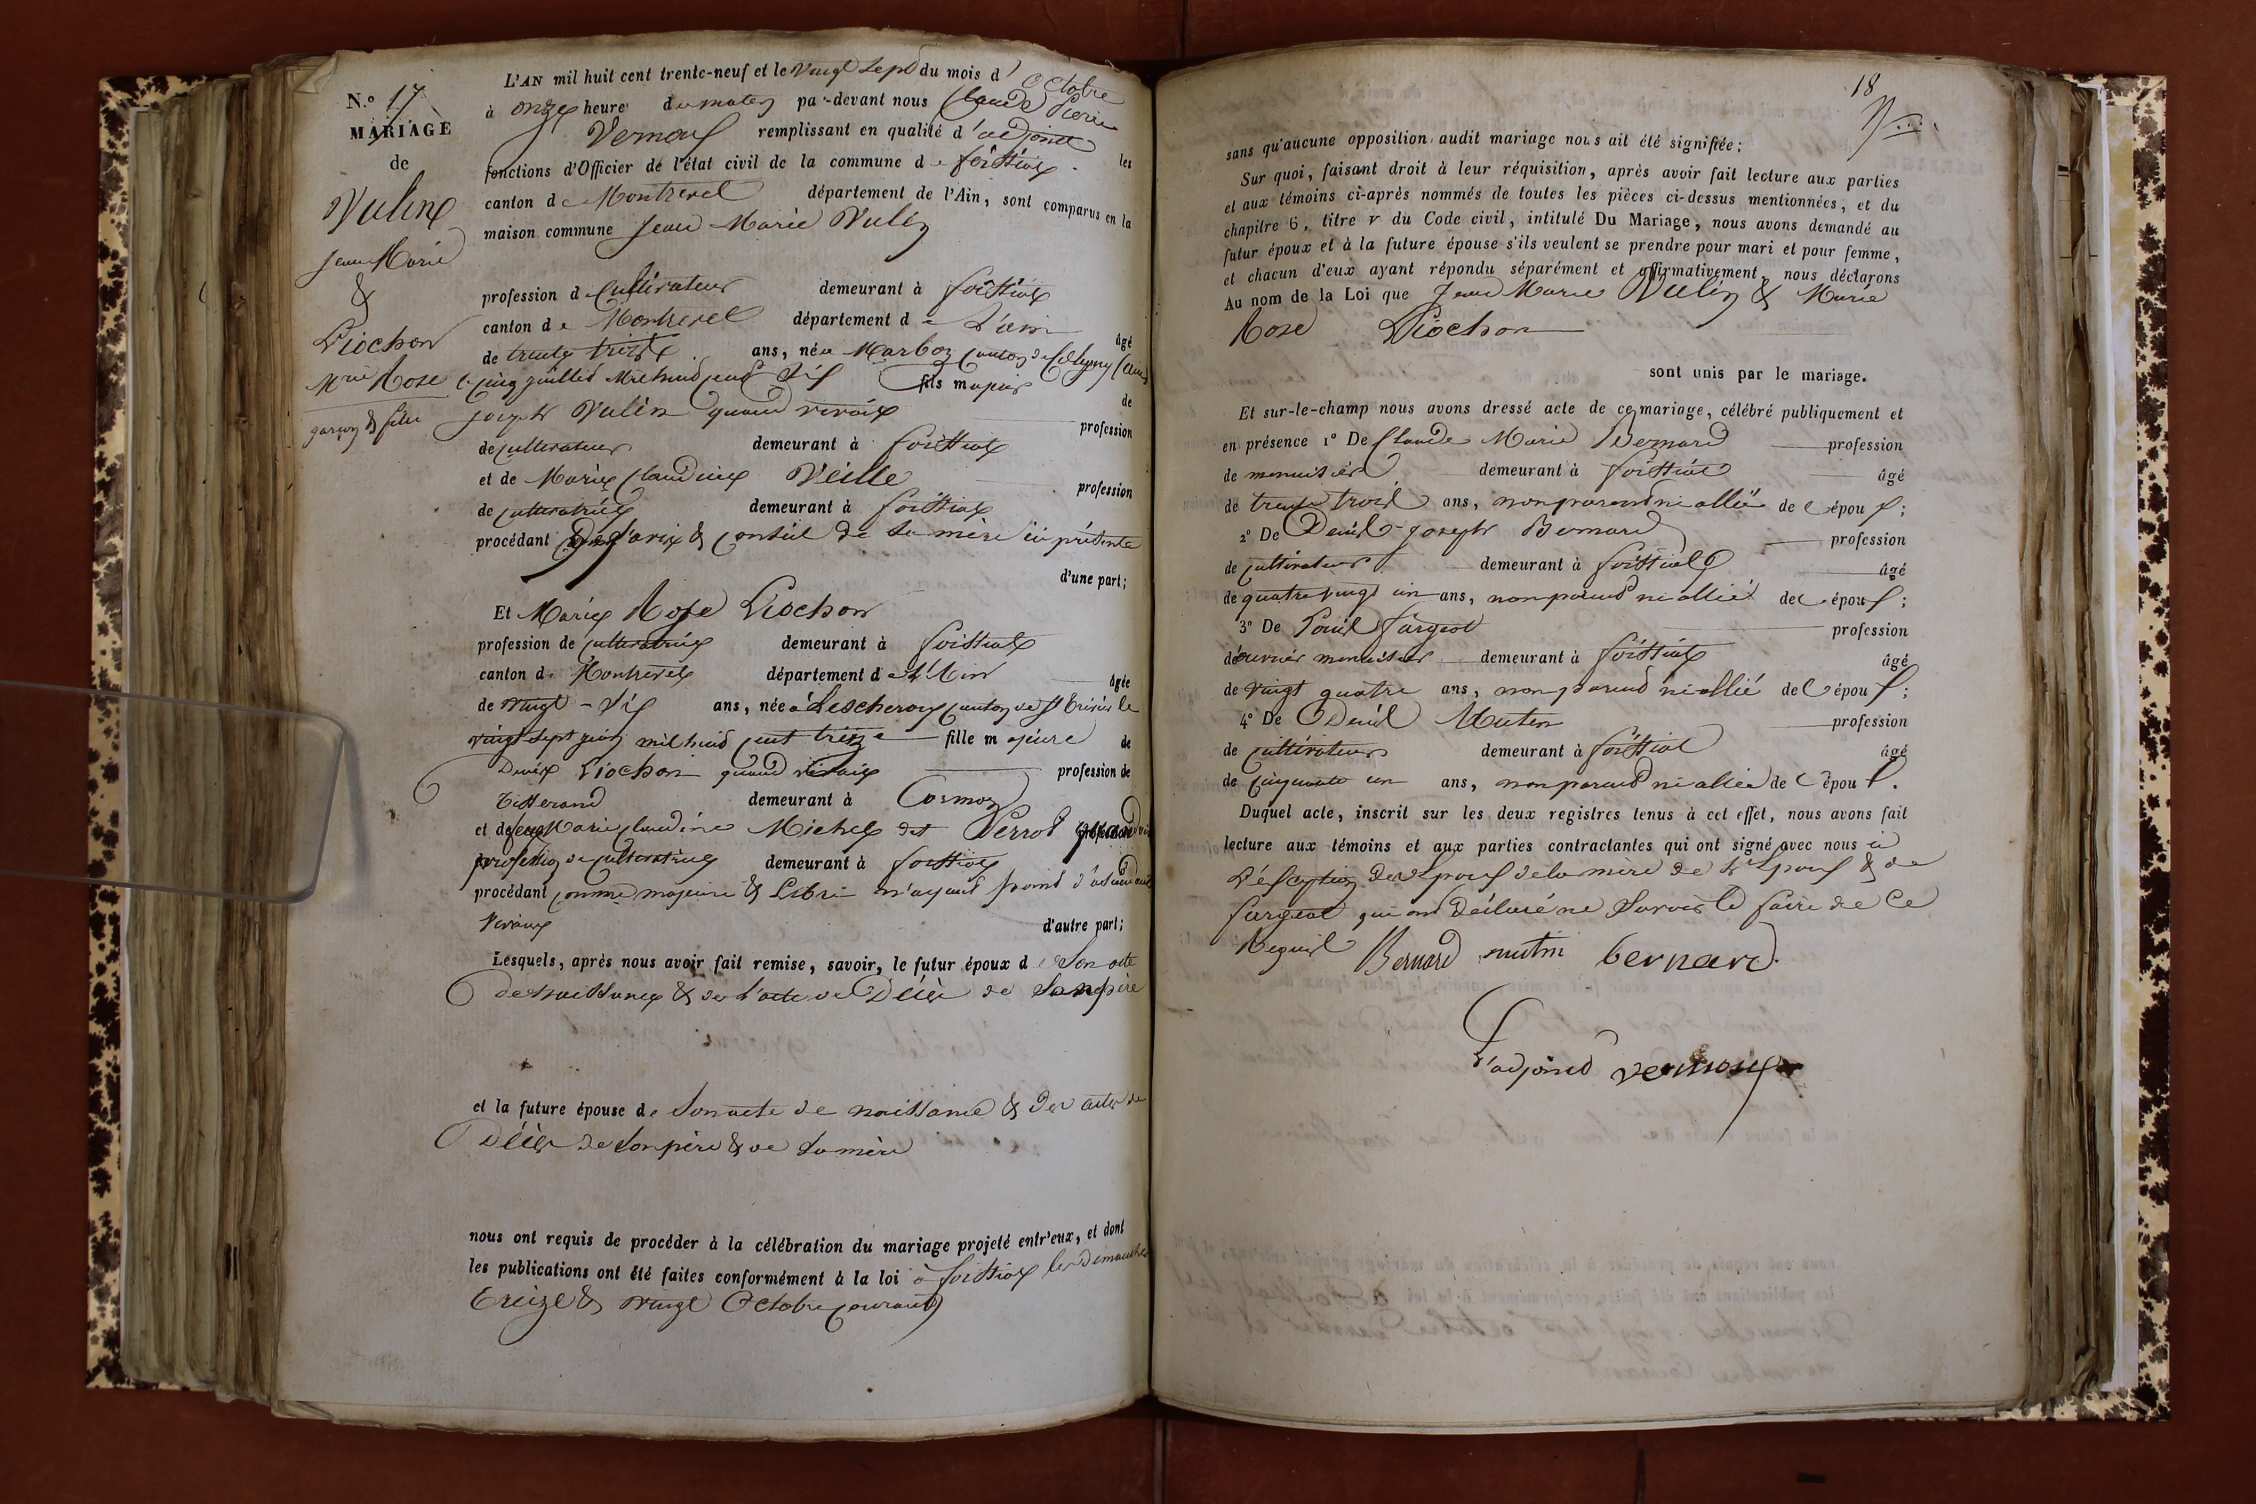 N.o 17
MARIAGE
de
Vulin
Jean Marie
&
Piochon
Mie Rose
garçon & fille
L'AN mil huit cent trente-neuf et le vingt sept du mois d'octobre
à onze heure du matin par-devant nous Claude Pierre
Vernoux remplissant en qualité d'adjoint les
fonctions d'Officier de l'état civil de la commune de foissiat
canton de Montrevel département de l'Ain, sont comparus en la
maison commune Jean Marie Vulin
profession de Cultivateur demeurant à foissiat
canton de Montrevel département de L'ain âgé
de trente trois ans, né a Marboz canton de Coligny (ain)
le cinq juillet mil huit cent six fils majeur de
joseph Vulin quand vivait profession
de cultivateur demeurant à foissiat
et de Marie Claudine Veille profession
de cultivatrice demeurant à foissiat
procédant de l'avis & conseil de sa mère ici présente
d'une part;
Et Marie Rose Piochon
profession de cultivatrice demeurant à foissiat
canton de Montrevel département de L'Ain âgée
de vingt-six ans, née à Lescheroux canton de St trivier le
vingt sept juin mil huit cent treize fille majeure de
Denis Piochon quand vivait profession de
tisserand demeurant à Cormoz
et de feue Marie Claudine Michel dit Perrot quand vivait
profession de cultivatrice demeurant à foissiat
procédant comme majeure & Libre n'ayant point d'ascendants
vivants d'autre part;
Lesquels, après nous avoir fait remise, savoir, le futur époux de Son acte
de naissance & de l'acte de Décès de Son père
et la future épouse de Son acte de naissance & des actes de
Décès de Son père & de Sa mère
nous ont requis de procéder à la célébration du mariage projeté entr'eux, et dont
les publications ont été faites conformément à la loi à foissiat les dimanches
treize & vingt Octobre courant
18
sans qu'aucune opposition audit mariage nous ait été signifiée;
Sur quoi, faisant droit à leur réquisition, après avoir fait lecture aux parties
et aux témoins ci-après nommés de toutes les pièces ci-dessus mentionnées, et du
chapitre 6, titre v du Code civil, intitulé Du Mariage, nous avons demandé au
futur époux et à la future épouse s'ils veulent se prendre pour mari et pour femme,
et chacun d'eux ayant répondu séparément et affirmativement, nous déclarons
Au nom de la Loi que Jean Marie Vulin & Marie
Rose Piochon
sont unis par le mariage.
Et sur-le-champ nous avons dressé acte de ce mariage, célébré publiquement et
en présence 1º De Claude Marie Bernard profession
de menuisier demeurant à foissiat âgé
de trente trois ans, non parent ni allié de l'époux;
2º De Denis-Joseph Bernard profession
de cultivateur demeurant à foissiat âgé
de quatre vingt un ans, non parent ni allié de l'époux;
3º De Louis fargeot profession
d'ouvrier menuisier demeurant à foissiat âgé
de vingt quatre ans, non parent ni allié de l'époux;
4º De Denis Mutin profession
de cultivateur demeurant à foissiat âgé
de cinquante un ans, non parent ni allié de l'époux.
Duquel acte, inscrit sur les deux registres tenus à cet effet, nous avons fait
lecture aux témoins et aux parties contractantes qui ont signé avec nous à
L'éxception des Epoux de la mère de l'Epoux & de
fargeot, qui ont déclaré ne Savoir le faire de Ce
Requis Bernard mutin bernard.
L'adjoint vernoux